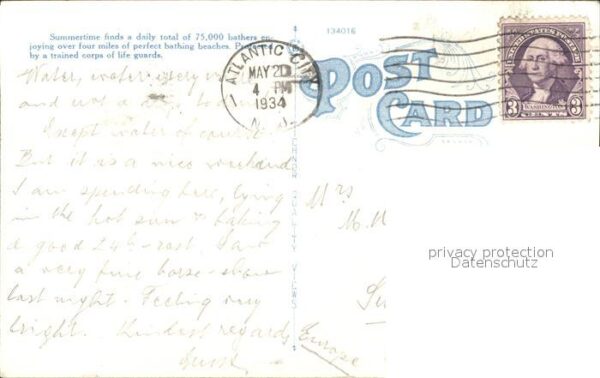 Summertime finds a daily total of 75,000 bathers en-
joying over four miles of perfect bathing beaches.
by a trained corps of life guards.
134016
ATLANTIC CITY
MAY 20
4 PM
1934
N. J.
POST
CARD
UNITED STATES POSTAGE
WASHINGTON
3 3
Water, water every
and not a drop to
Except water of course
But it is a nice weekend
I am spending here, lying
in the hot sun & taking
a good 24h-rest. Saw
a very fine horse-show
last night. Feeling very
bright. Kindest regards
Mrs
M.
Europe
privacy protection
Datenschutz